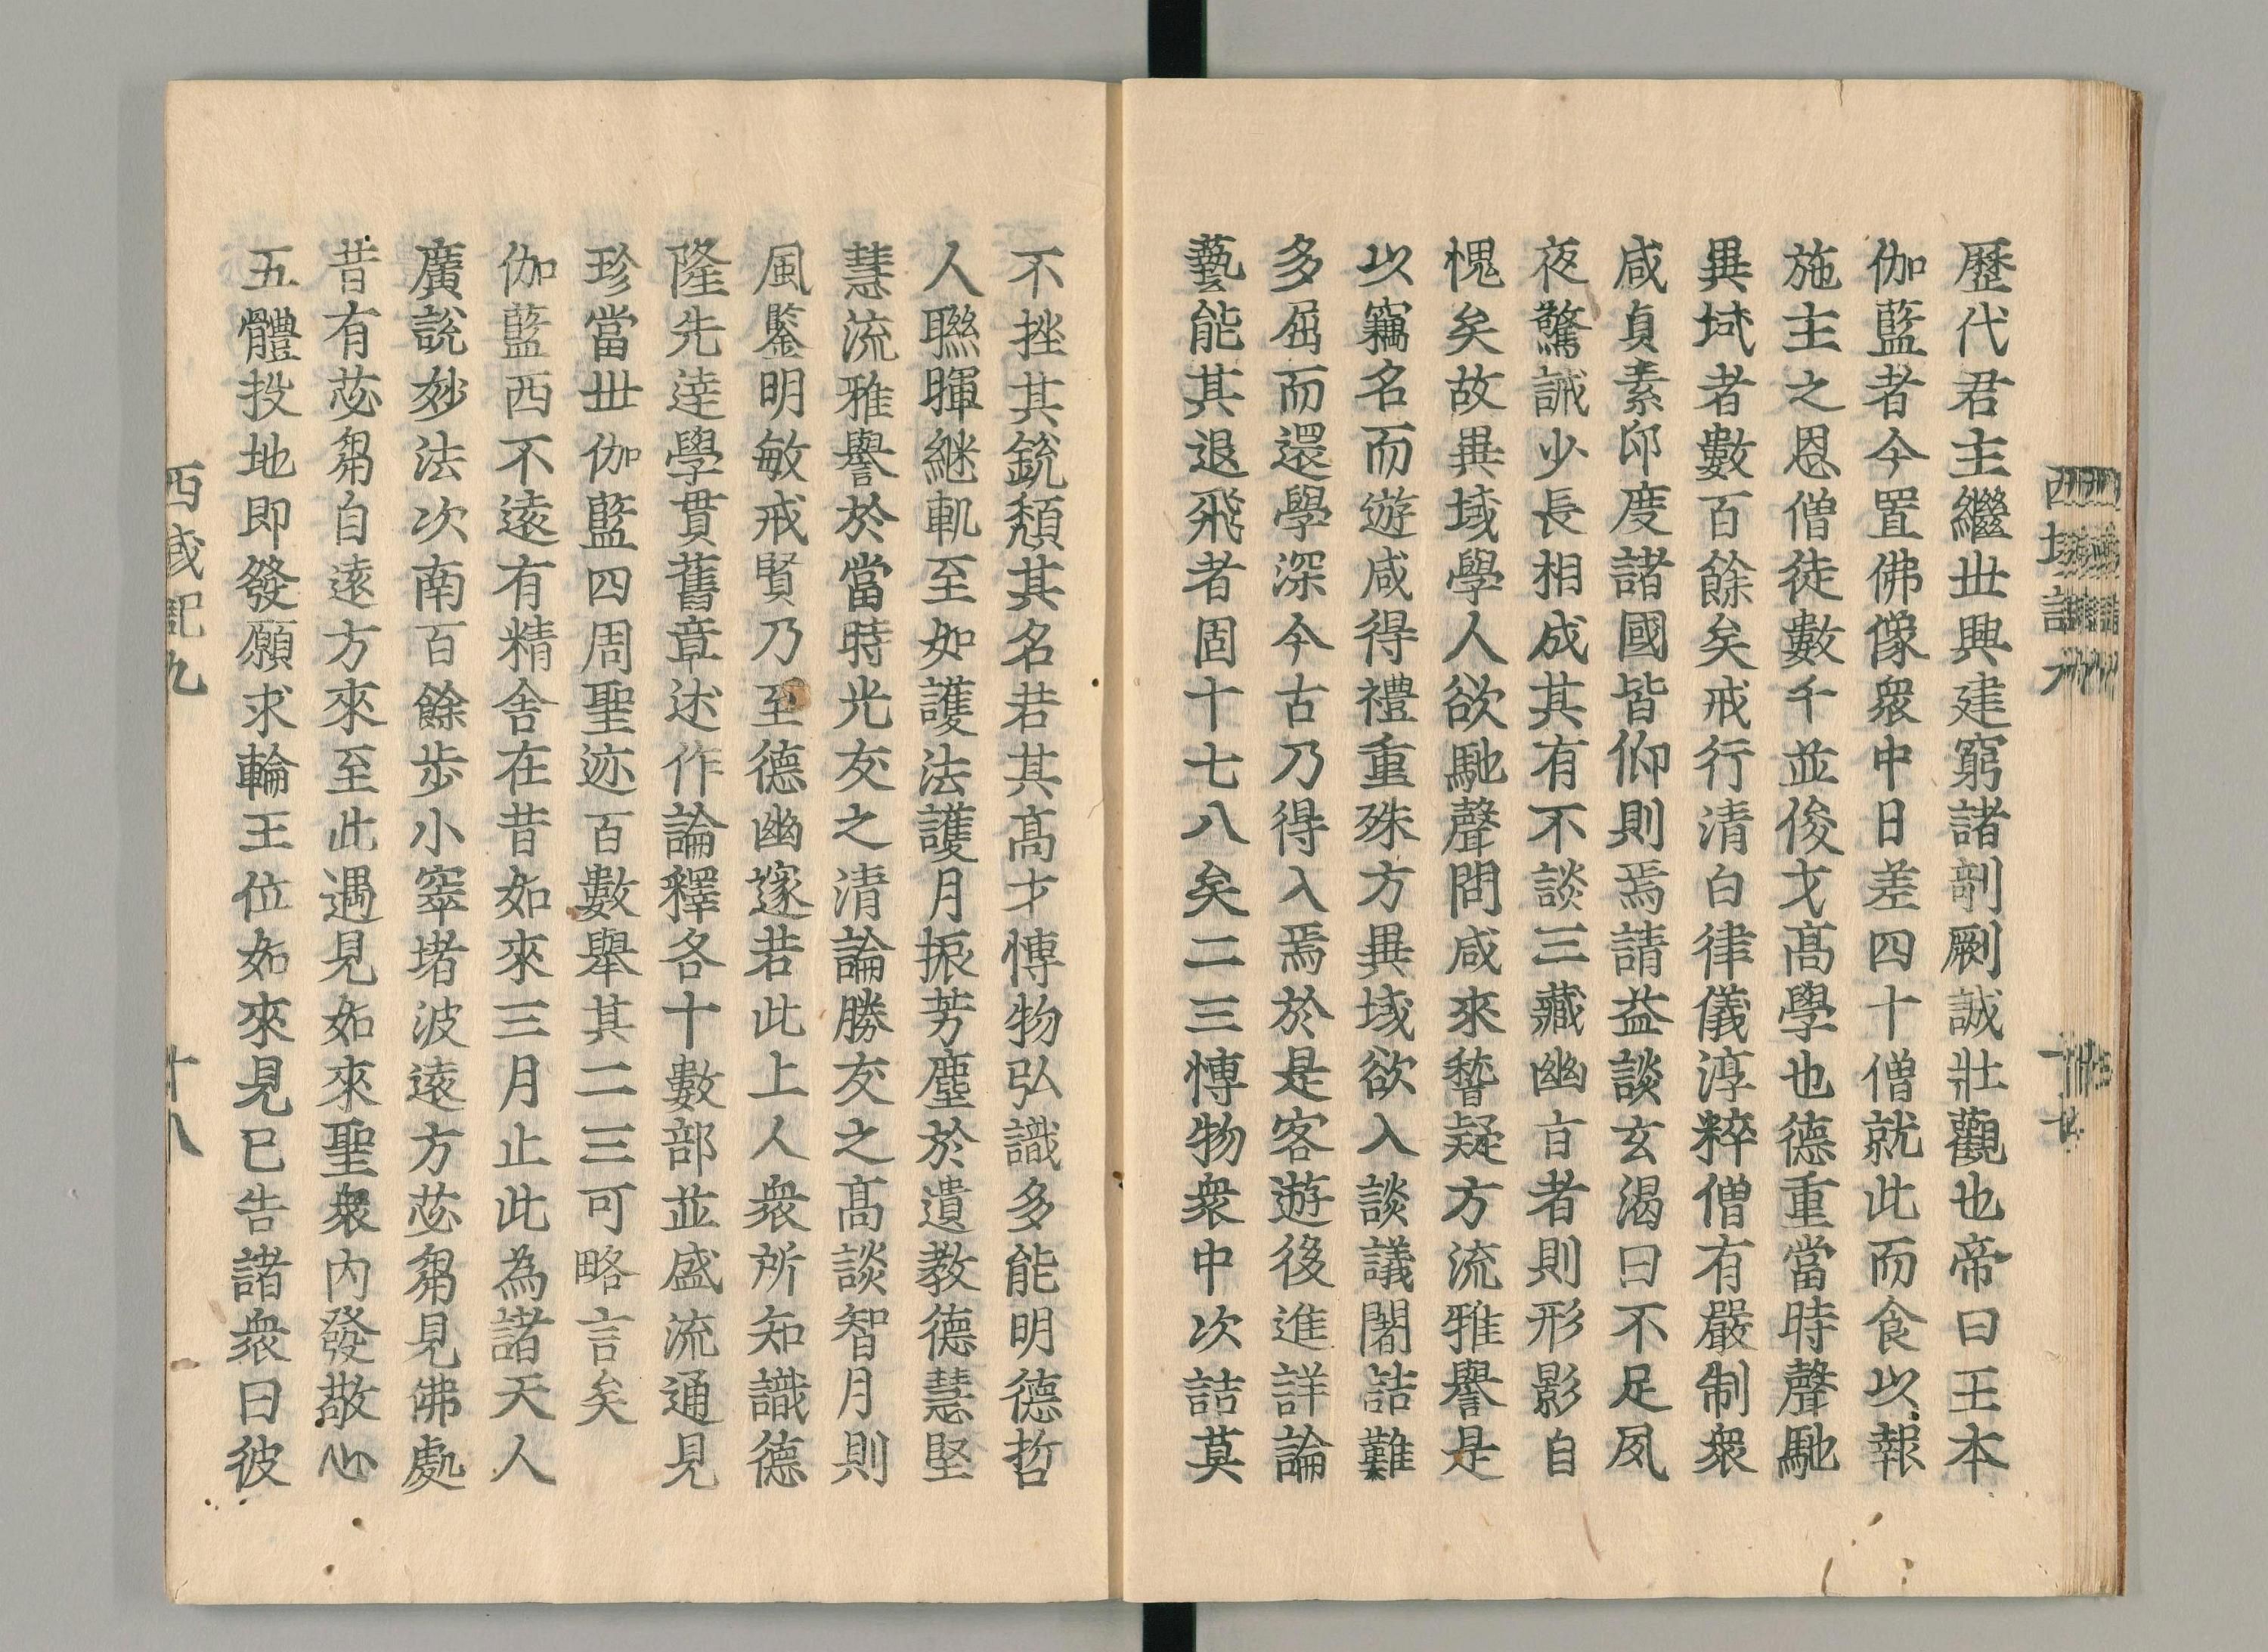 歷代君主繼世興建窮諸剞劂誠壯觀也帝曰王本
伽藍者今置佛像衆中日差四十僧就此而食以報
施主之恩僧徒數千並俊才高學也德重當時聲馳
異域者數百餘矣戒行清白律儀淳粹僧有嚴制衆
咸貞素印度諸國皆仰則焉請益談玄渴日不足夙
夜驚誡少長相成其有不談三藏幽㫖者則形影自
愧矣故異域學人欲馳聲問咸來稽疑方流雅譽是
以竊名而遊咸得禮重殊方異域欲入談議闍詰難
多屈而還學深今古乃得入焉於是客遊後進詳論
藝能其退飛者固十七八矣二三愽物衆中次詰莫
不挫其銳頹其名若其高才愽物弘識多能明德哲
人聯暉継軌至如護法護月振芳塵於遺教德慧堅
慧流雅譽於當時光友之清論勝友之高談智月則
風鑒明敏戒賢乃至德幽邃若此上人衆所知識德
隆先達學貫舊章述作論釋各十數部並盛流通見
珍當世伽藍四周聖迹百數舉其二三可略言矣
伽藍西不遠有精舍在昔如來三月止此為諸天人
廣說妙法次南百餘步小窣堵波遠方苾芻見佛處
昔有苾芻自遠方來至此遇見如來聖衆內發敬心
五體投地即發願求輪王位如來見已告諸衆曰彼
西域記九 十八